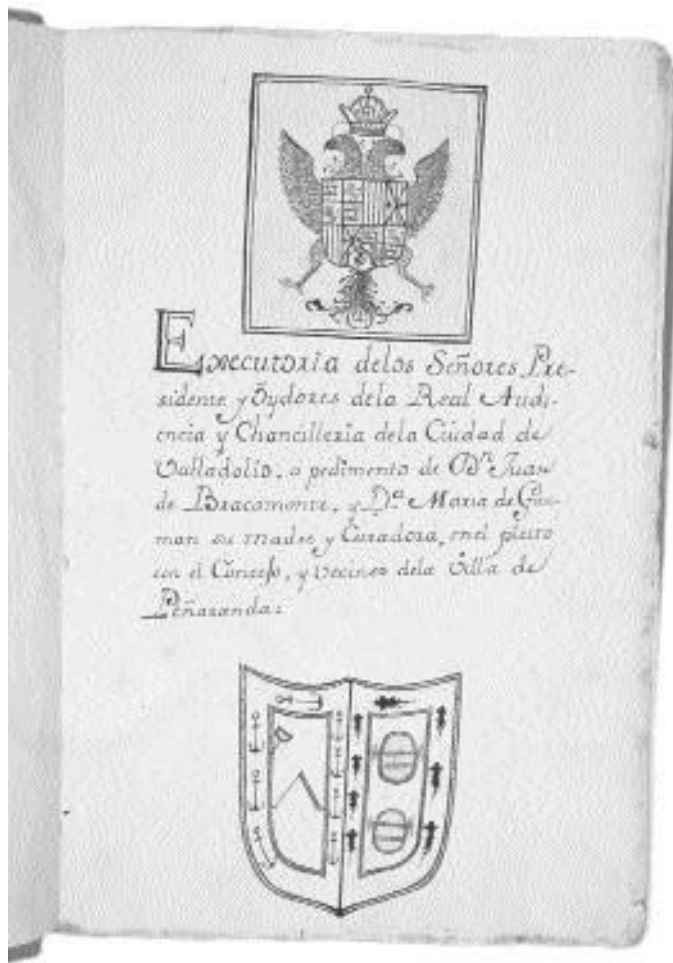 Executoria delos Señores Pre-
sidente y Oydores dela Real Audi-
encia y Chancilleria dela Ciudad de
Valladolid, a pedimento de Dn Juan
de Bracamonte, y Da. Maria de Guz-
man su madre y Curadora, enel pleito
con el Concejo, y vecinos dela Villa de
Peñaranda: